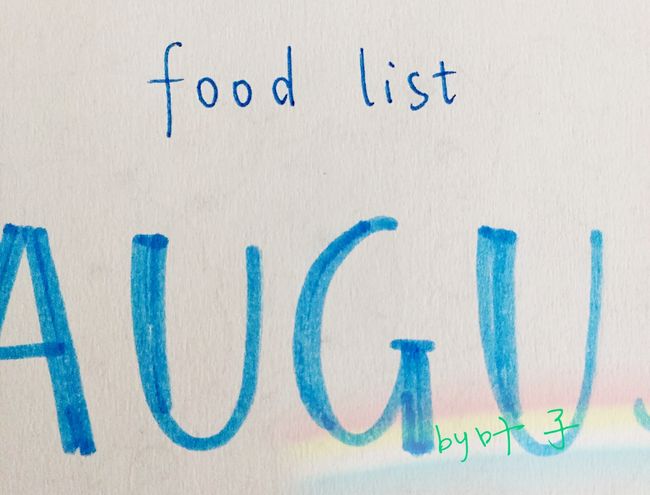 food list
AUGU
by叶子